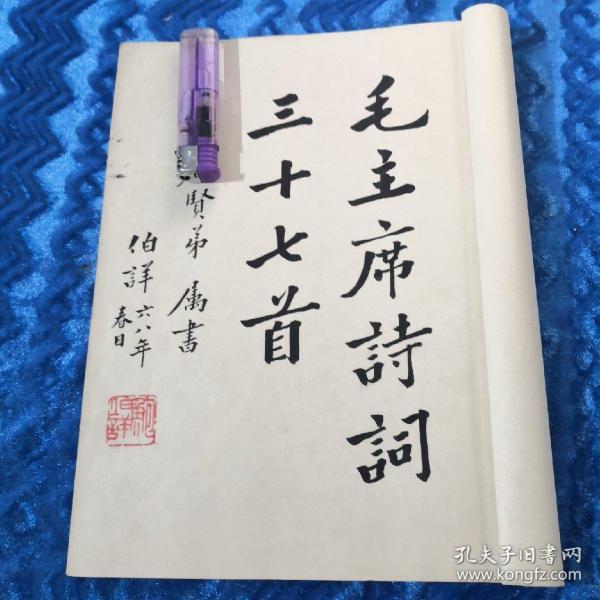 毛主席詩詞
三十七首
賢弟 属書
伯詳 六八年
春日
孔夫子旧书网
www.kongfz.com